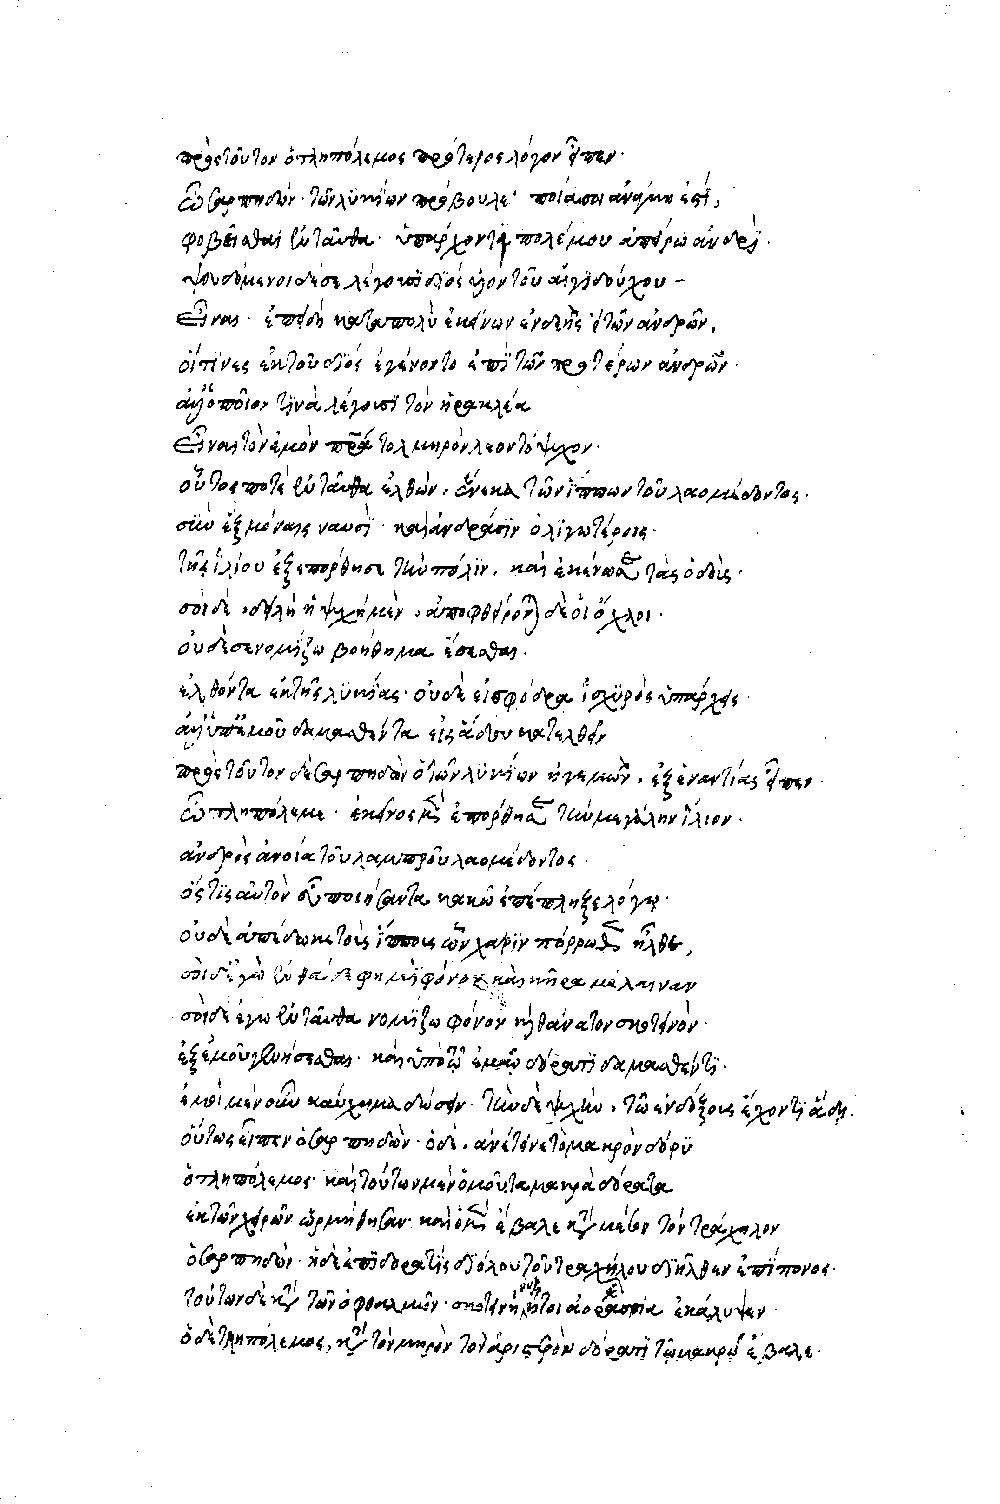 πρὸς τοῦτον ὁ τληπόλεμος πρότερος λόγον εἶπεν·
ὦ σαρπηδών· τῶν λυκίων πρόβουλε· ποία σοι ἀνάγκη ἐστί,
φοβεῖσθαι ἐνταῦθα· ὑπάρχοντι πολέμου ἀπείρω ἀνδρί·
ψευδόμενοι δέ σε λέγουσι διός ἔγγονον τοῦ αἰγιδούχου –
εἶναι· ἐπειδὴ κατὰ πολὺ ἐκείνων ἐνδεὴς εἶ τῶν ἀνδρῶν,
οἵτινες ἐκ τοῦ διός ἐγένοντο ἐπὶ τῶν προτέρων ἀνδρῶν·
ἀλλ' ὁποῖον τινὰ λέγουσι τὸν ἡρακλέα
εἶναι τὸν ἐμὸν πρα τολμηρὸν λεοντόψυχον·
οὗτος ποτὲ ἐνταῦθα ἐλθών, ἕνεκα τῶν ἵππων τοῦ λαομέδοντος·
σὺν ἓξ μόναις ναυσὶ· καὶ ἀνδράσιν ὀλιγωτέροις·
τῆς ἰλίου ἐξεπόρθησε τὴν πόλιν, καὶ ἐκένωσε τὰς ὁδούς·
σοὶ δὲ, δειλὴ ἡ ψυχὴ μὲν, ἀποφθείρονται δὲ οἱ ὄχλοι·
οὐδέ σε νομίζω βοήθημα ἔσεσθαι·
ἐλθόντα ἐκ τῆς λυκίας· οὐδὲ εἰ σφόδρα ἰσχυρὸς ὑπάρχεις·
ἀλλ' ὑπ' ἐμοῦ δαμασθέντα εἰς ἅδου κατελθεῖν
πρὸς τοῦτον δὲ σαρπηδὼν ὁ τῶν λυκίων ἡγεμὼν, ἐξ ἐναντίας εἶπεν·
ὦ τληπόλεμε· ἐκεῖνος μὲν ἐπόρθησε τὴν μεγάλην ἴλιον·
ἀνδρὸς ἀνοία τοῦ λαμπροῦ λαομέδοντος·
ὅς τις αὐτὸν εὖ ποιήσαντα κακῶ ἐπέπληξε λόγω·
οὐδὲ ἀπέδωκε τοὺς ἵππους ὧν χάριν πόρρωθεν ἦλθε,
σοὶ δ' ἐγὼ ἐνθάδε φημὶ φόνον καὶ κῆρα μέλαιναν
σοὶ δὲ ἐγὼ ἐνταῦθα νομίζω φόνον καὶ θάνατον σκοτεινὸν·
ἐξ ἐμοῦ γενήσεσθαι· καὶ ὑπὸ τῶ ἐμῶ δόρατι δαμασθέντι·
ἐμοὶ μὲν οὖν καύχημα δώσειν· τὴν δὲ ψυχὴν, τῶ ἐνδόξους ἔχοντι ἅδη·
οὕτως εἶπεν ὁ σαρπηδὼν· ὁ δὲ, ἀνέτεινε τὸ μακρὸν δόρυ
ὁ τληπόλεμος· καὶ τούτων μὲν ὁμοῦ τὰ μακρὰ δόρατα
ἐκ τῶν χειρῶν ὥρμήθησαν· καὶ ὁ μὲν ἔβαλε κατὰ μέσον τὸν τράχηλον
ὁ σαρπηδὼν· ἡ δὲ ἐπιδορατὶς διόλου τοῦ τραχήλου διῆλθεν ἐπίπονος·
τοῦτον δὲ κατὰ τῶν ὀφθαλμῶν· σκοτεινὴ νὺξ ἤτοι ἀορασία ἐκάλυψεν·
ὁ δὲ τληπόλεμος, κατὰ τὸν μηρὸν τὸν ἀριστερὸν δόρατι τῶ μακρῶ ἔβαλε·